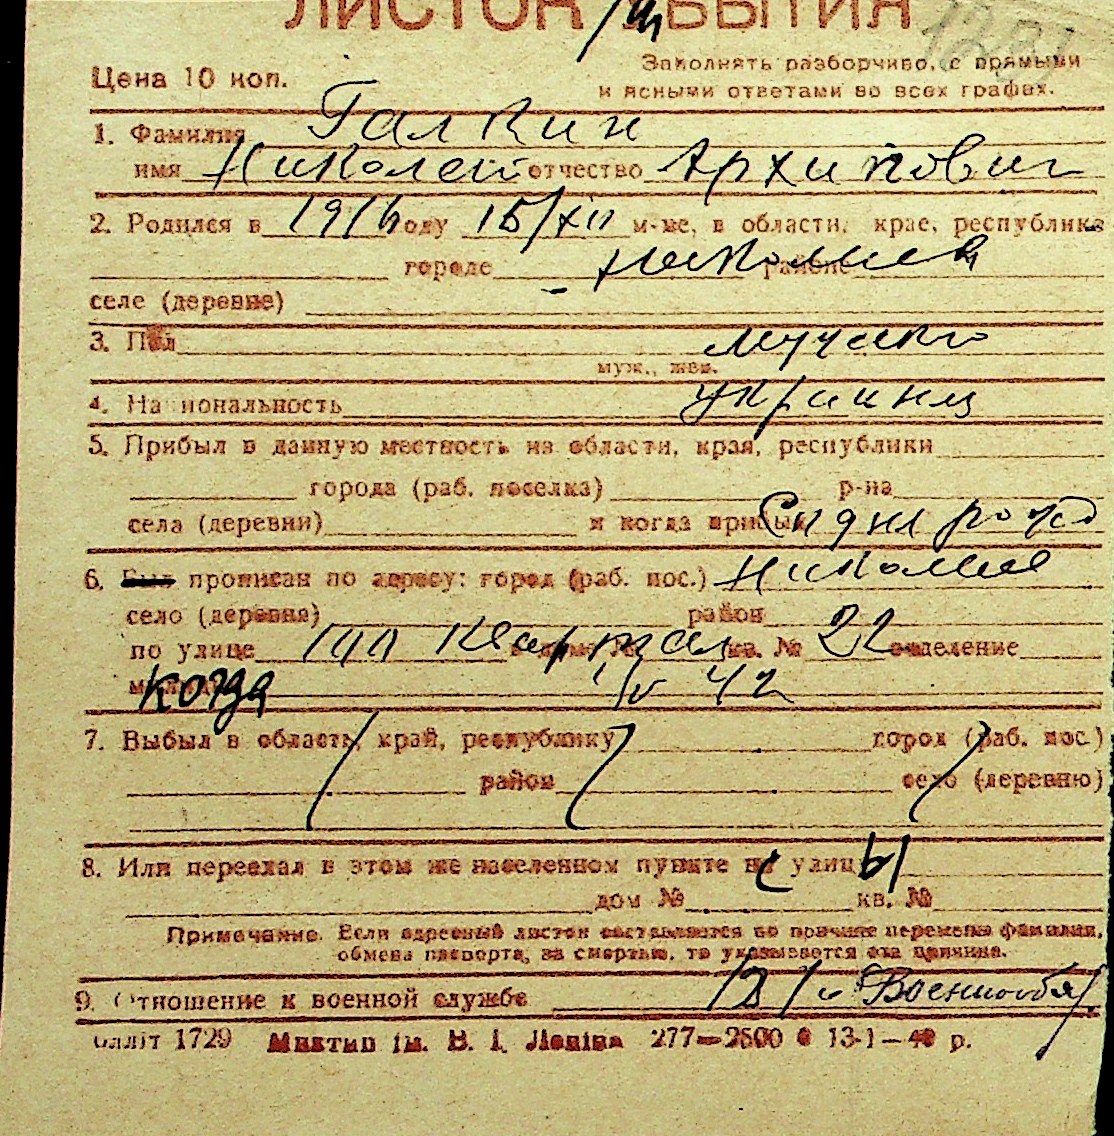 ЛИСТОК УБЫТИЯ
Цена 10 коп.
Заполнять разборчиво, с прямыми
и ясными ответами во всех графах.
1. Фамилия Галкин
имя Николай отчество Архипович
2. Родился в 1916 году 15/XII м-це, в области, крае, республике
городе Николаев районе
селе (деревне)
3. Пол
муж., жен.
4. Национальность украинец
5. Прибыл в данную местность из области, края, республики
города (раб. поселка) р-на
села (деревни) и когда прибыл
6. Был прописан по адресу: город (раб. пос.) Николаев
село (деревня) район
по улице квартал кв. № 22 отделение
когда 1/V 42
7. Выбыл в область, край, республику город (раб. пос.)
район село (деревню)
8. Или переехал в этом же населенном пункте с улицы
дом № кв. №
Примечание. Если адресный листок составляется по причине перемены фамилии,
обмена паспорта, за смертью, то указывается эта причина.
9. Отношение к военной службе
облліт 1729 Миктип ім. В. І. Леніна 277—2500 13-1-40 р.